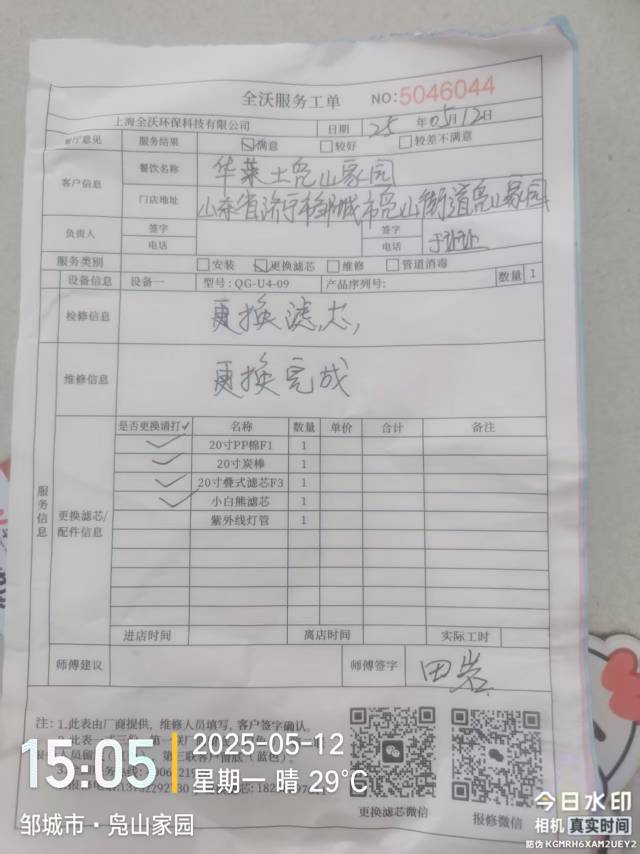 全沃服务工单 NO:5046044
上海全沃环保科技有限公司 日期 25 年 05 月 12 日
客户意见 服务结果 ☑满意 □较好 □较差不满意
客户信息 餐饮名称 华莱士凫山家园
门店地址 山东省济宁市邹城市凫山街道凫山家园
负责人 签字 签字
电话 电话
服务类别 □安装 ☑更换滤芯 □维修 □管道消毒
设备信息 设备一 型号: QG-U4-09 产品序列号: 数量 1
检修信息 更换滤芯,
维修信息 更换完成
服务信息
更换滤芯/配件信息
是否更换请打✓ 名称 数量 单价 合计 备注
✓ 20寸PP棉F1 1
✓ 20寸炭棒 1
✓ 20寸叠式滤芯F3 1
✓ 小白熊滤芯 1
紫外线灯管 1
进店时间 离店时间 实际工时
师傅建议 师傅签字 田岩
注: 1.此表由厂商提供, 维修人员填写, 客户签字确认。
更换滤芯微信 报修微信
15:05 2025-05-12
星期一 晴 29℃
邹城市·凫山家园
今日水印
相机 真实时间
防伪 KGMRH6XAM2UEY2